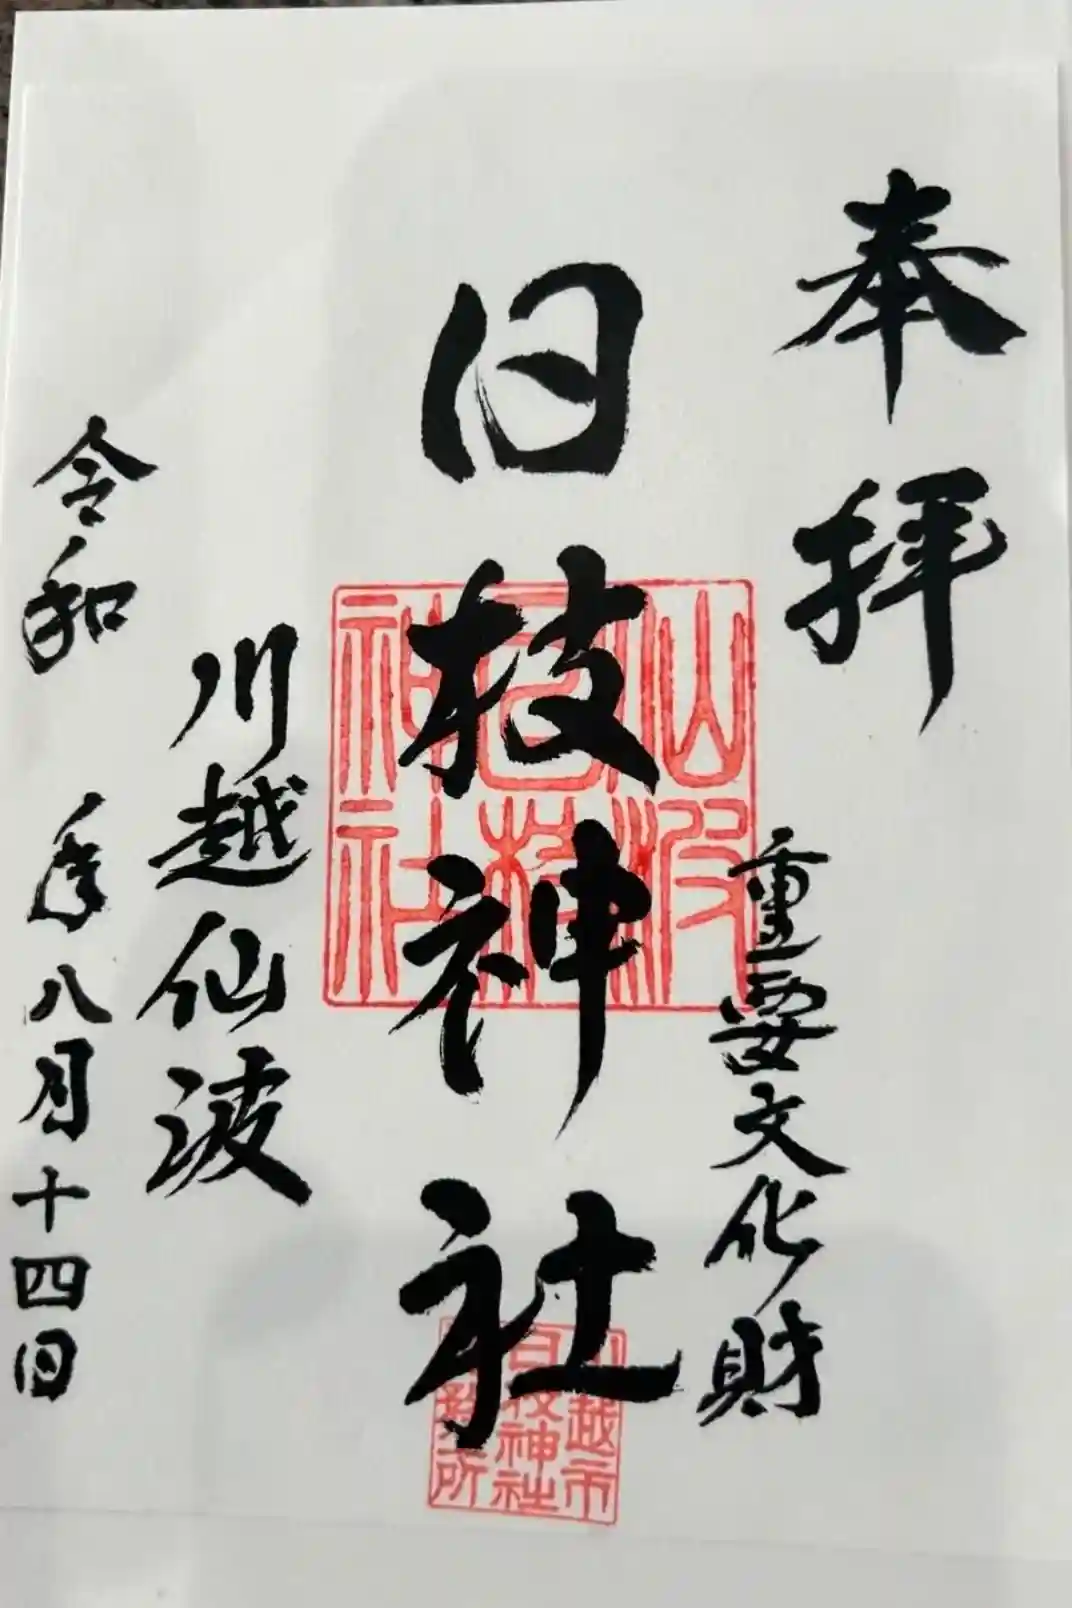 奉拝
重要文化財
日枝神社
仙波
日枝
神社
川越市
日枝神社
務所
川越仙波
令和 年八月十四日